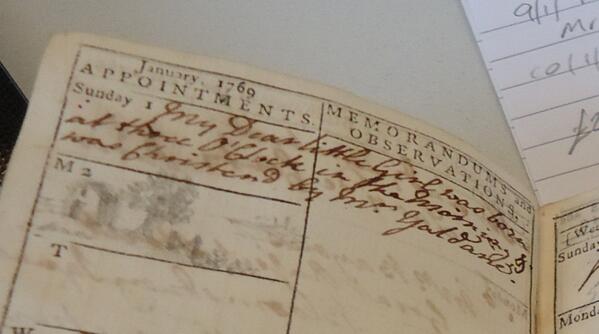 January, 1769
APPOINTMENTS.
MEMORANDUMS and
OBSERVATIONS.
Sunday 1
My Dear little Girl was born
at three O'Clock in the Morning &
was Christend by Mr.
M 2
T
W
9/1/
Mr
£2
(We
Sunday
Monda